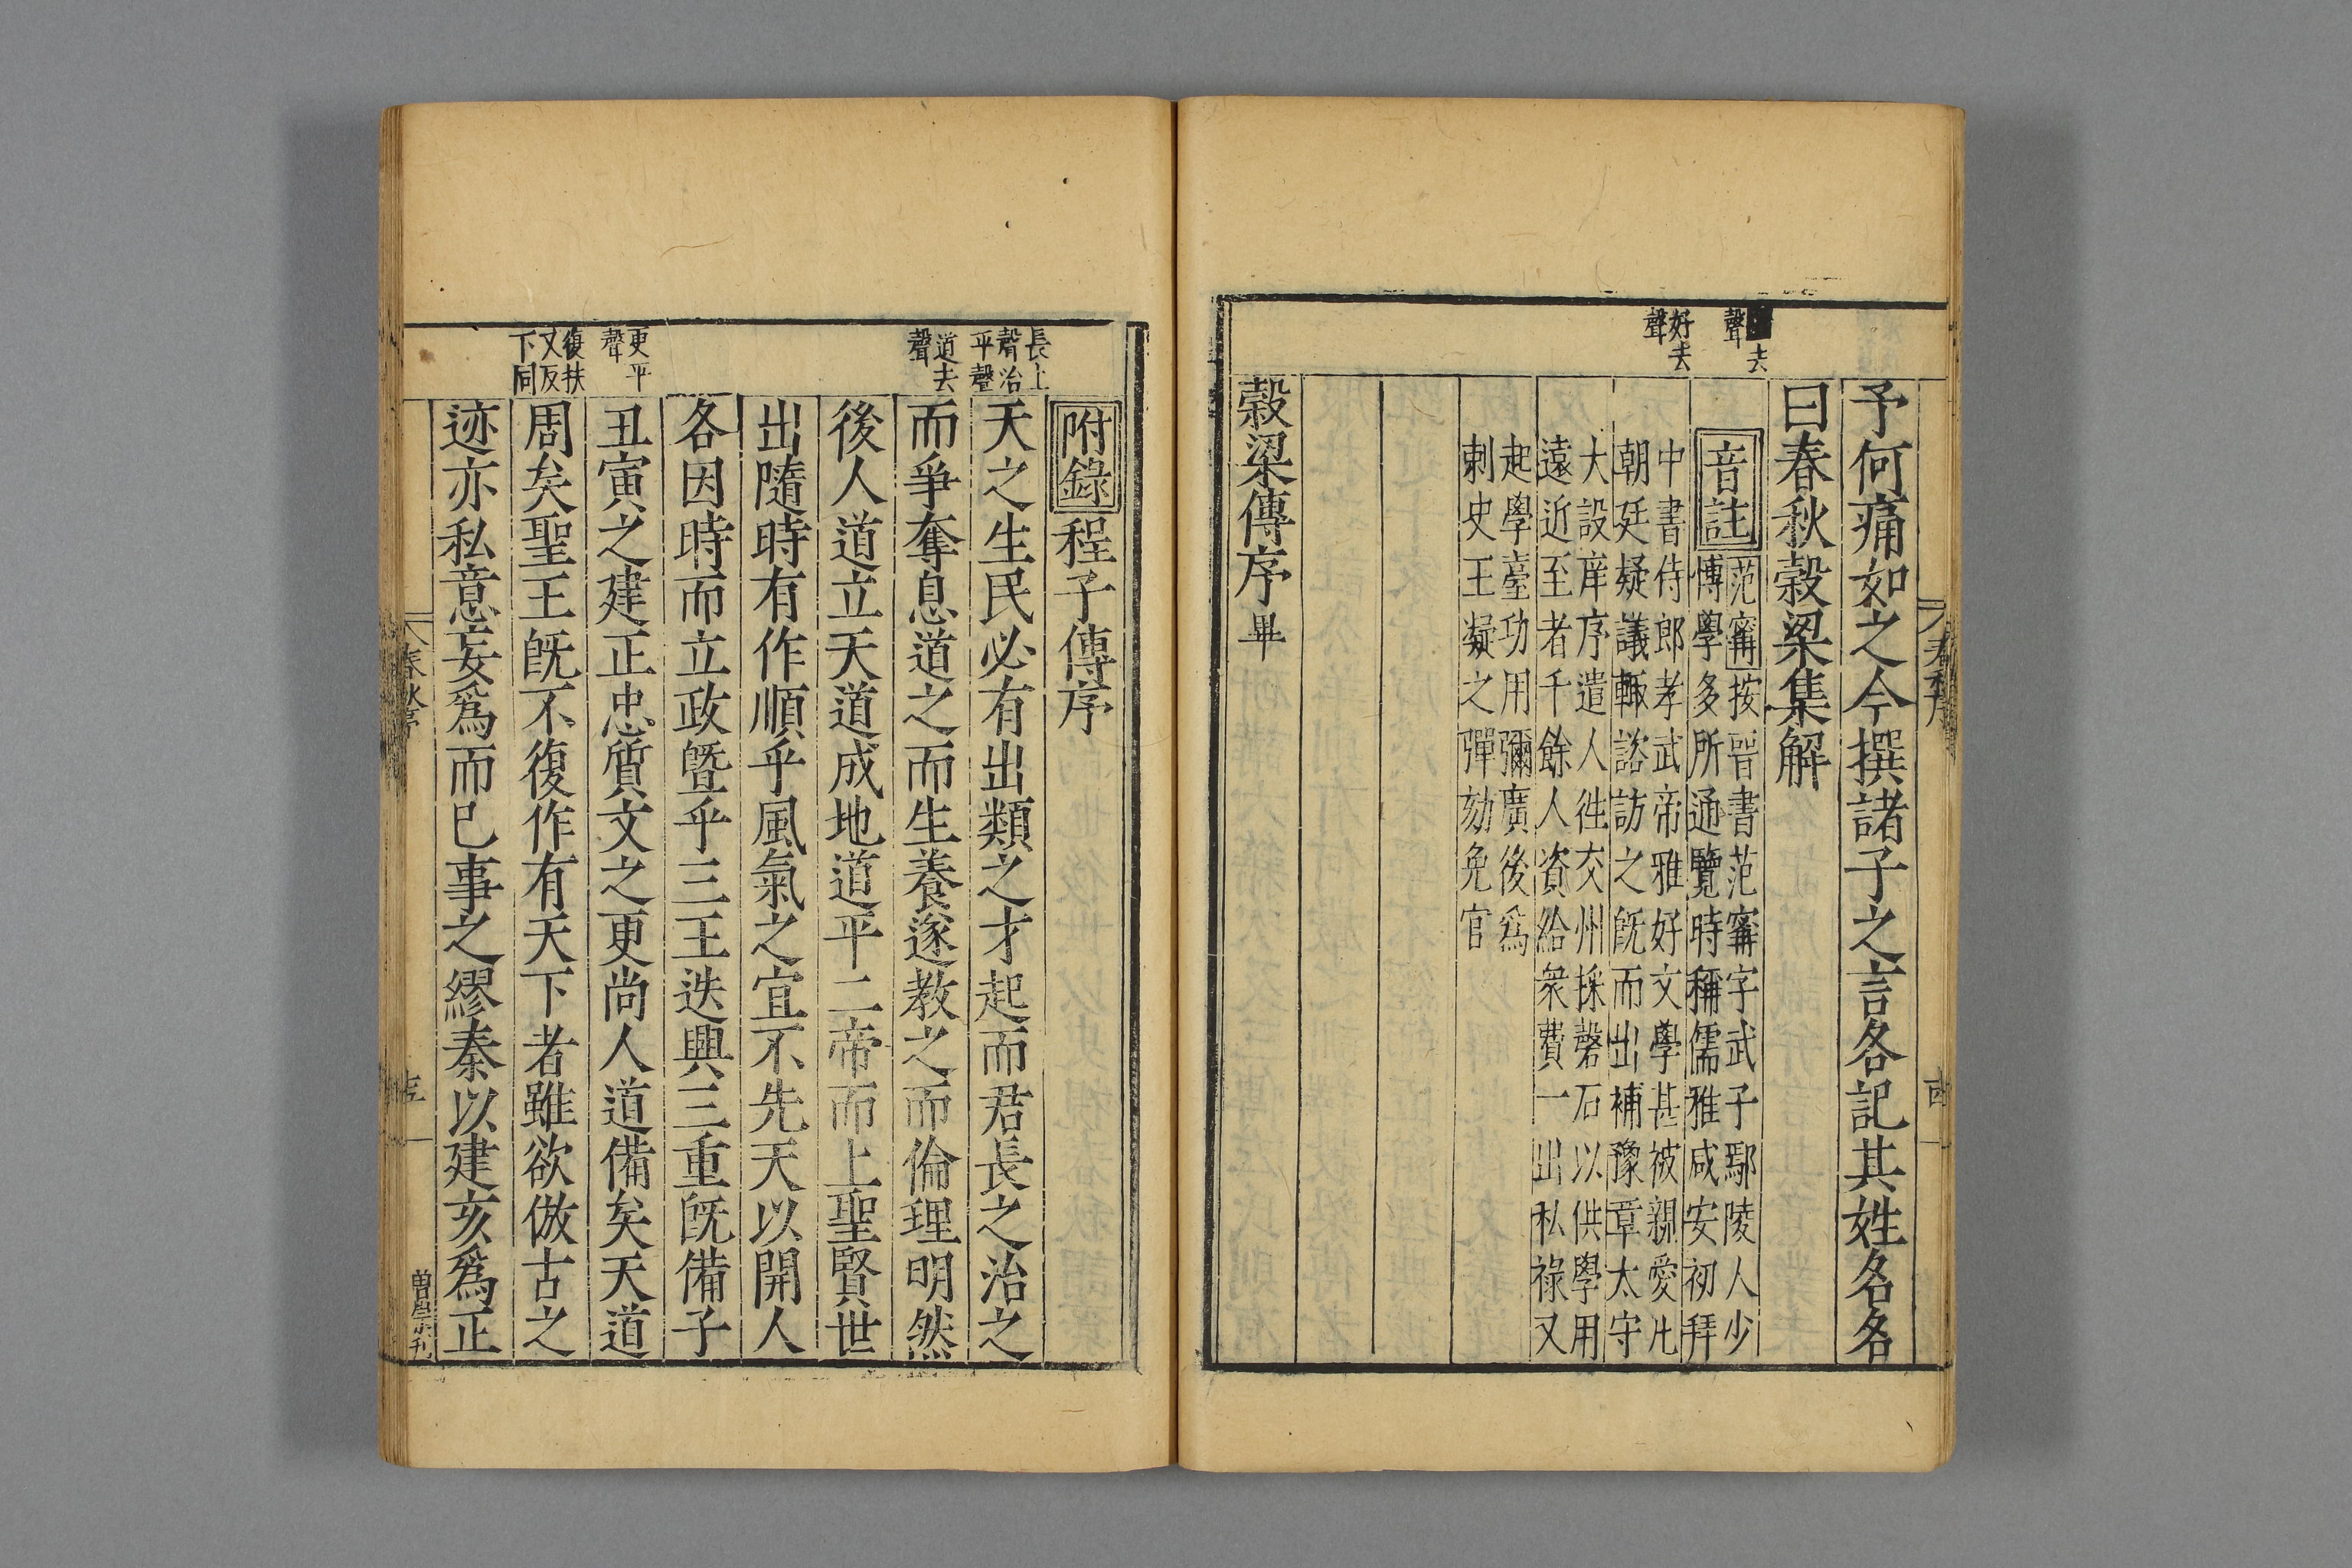 予何痛如之今撰諸子之言各記其姓名名
曰春秋穀梁集解
去
聲
音註
范甯按晉書范甯字武子鄢陵人少
博學多所通覽時稱儒雅咸安初拜
好去
聲
中書侍郎孝武帝雅好文學甚被親愛凡
朝廷疑議輒諮訪之旣而出補豫章太守
大設庠序遣人徃交州採磬石以供學用
遠近至者千餘人資給衆費一出私祿又
起學臺功用彌廣後爲
刺史王凝之彈劾免官
穀梁傳序畢
附錄程子傳序
長上
聲治
平聲
天之生民必有出類之才起而君長之治之
道去
聲
而爭奪息道之而生養遂教之而倫理明然
後人道立天道成地道平二帝而上聖賢世
出隨時有作順乎風氣之宜不先天以開人
各因時而立政曁乎三王迭興三重旣備子
更平
聲
丑寅之建正忠質文之更尚人道備矣天道
復扶
又反
下同
周矣聖王旣不復作有天下者雖欲倣古之
迹亦私意妄爲而已事之繆秦以建亥爲正
春秋序